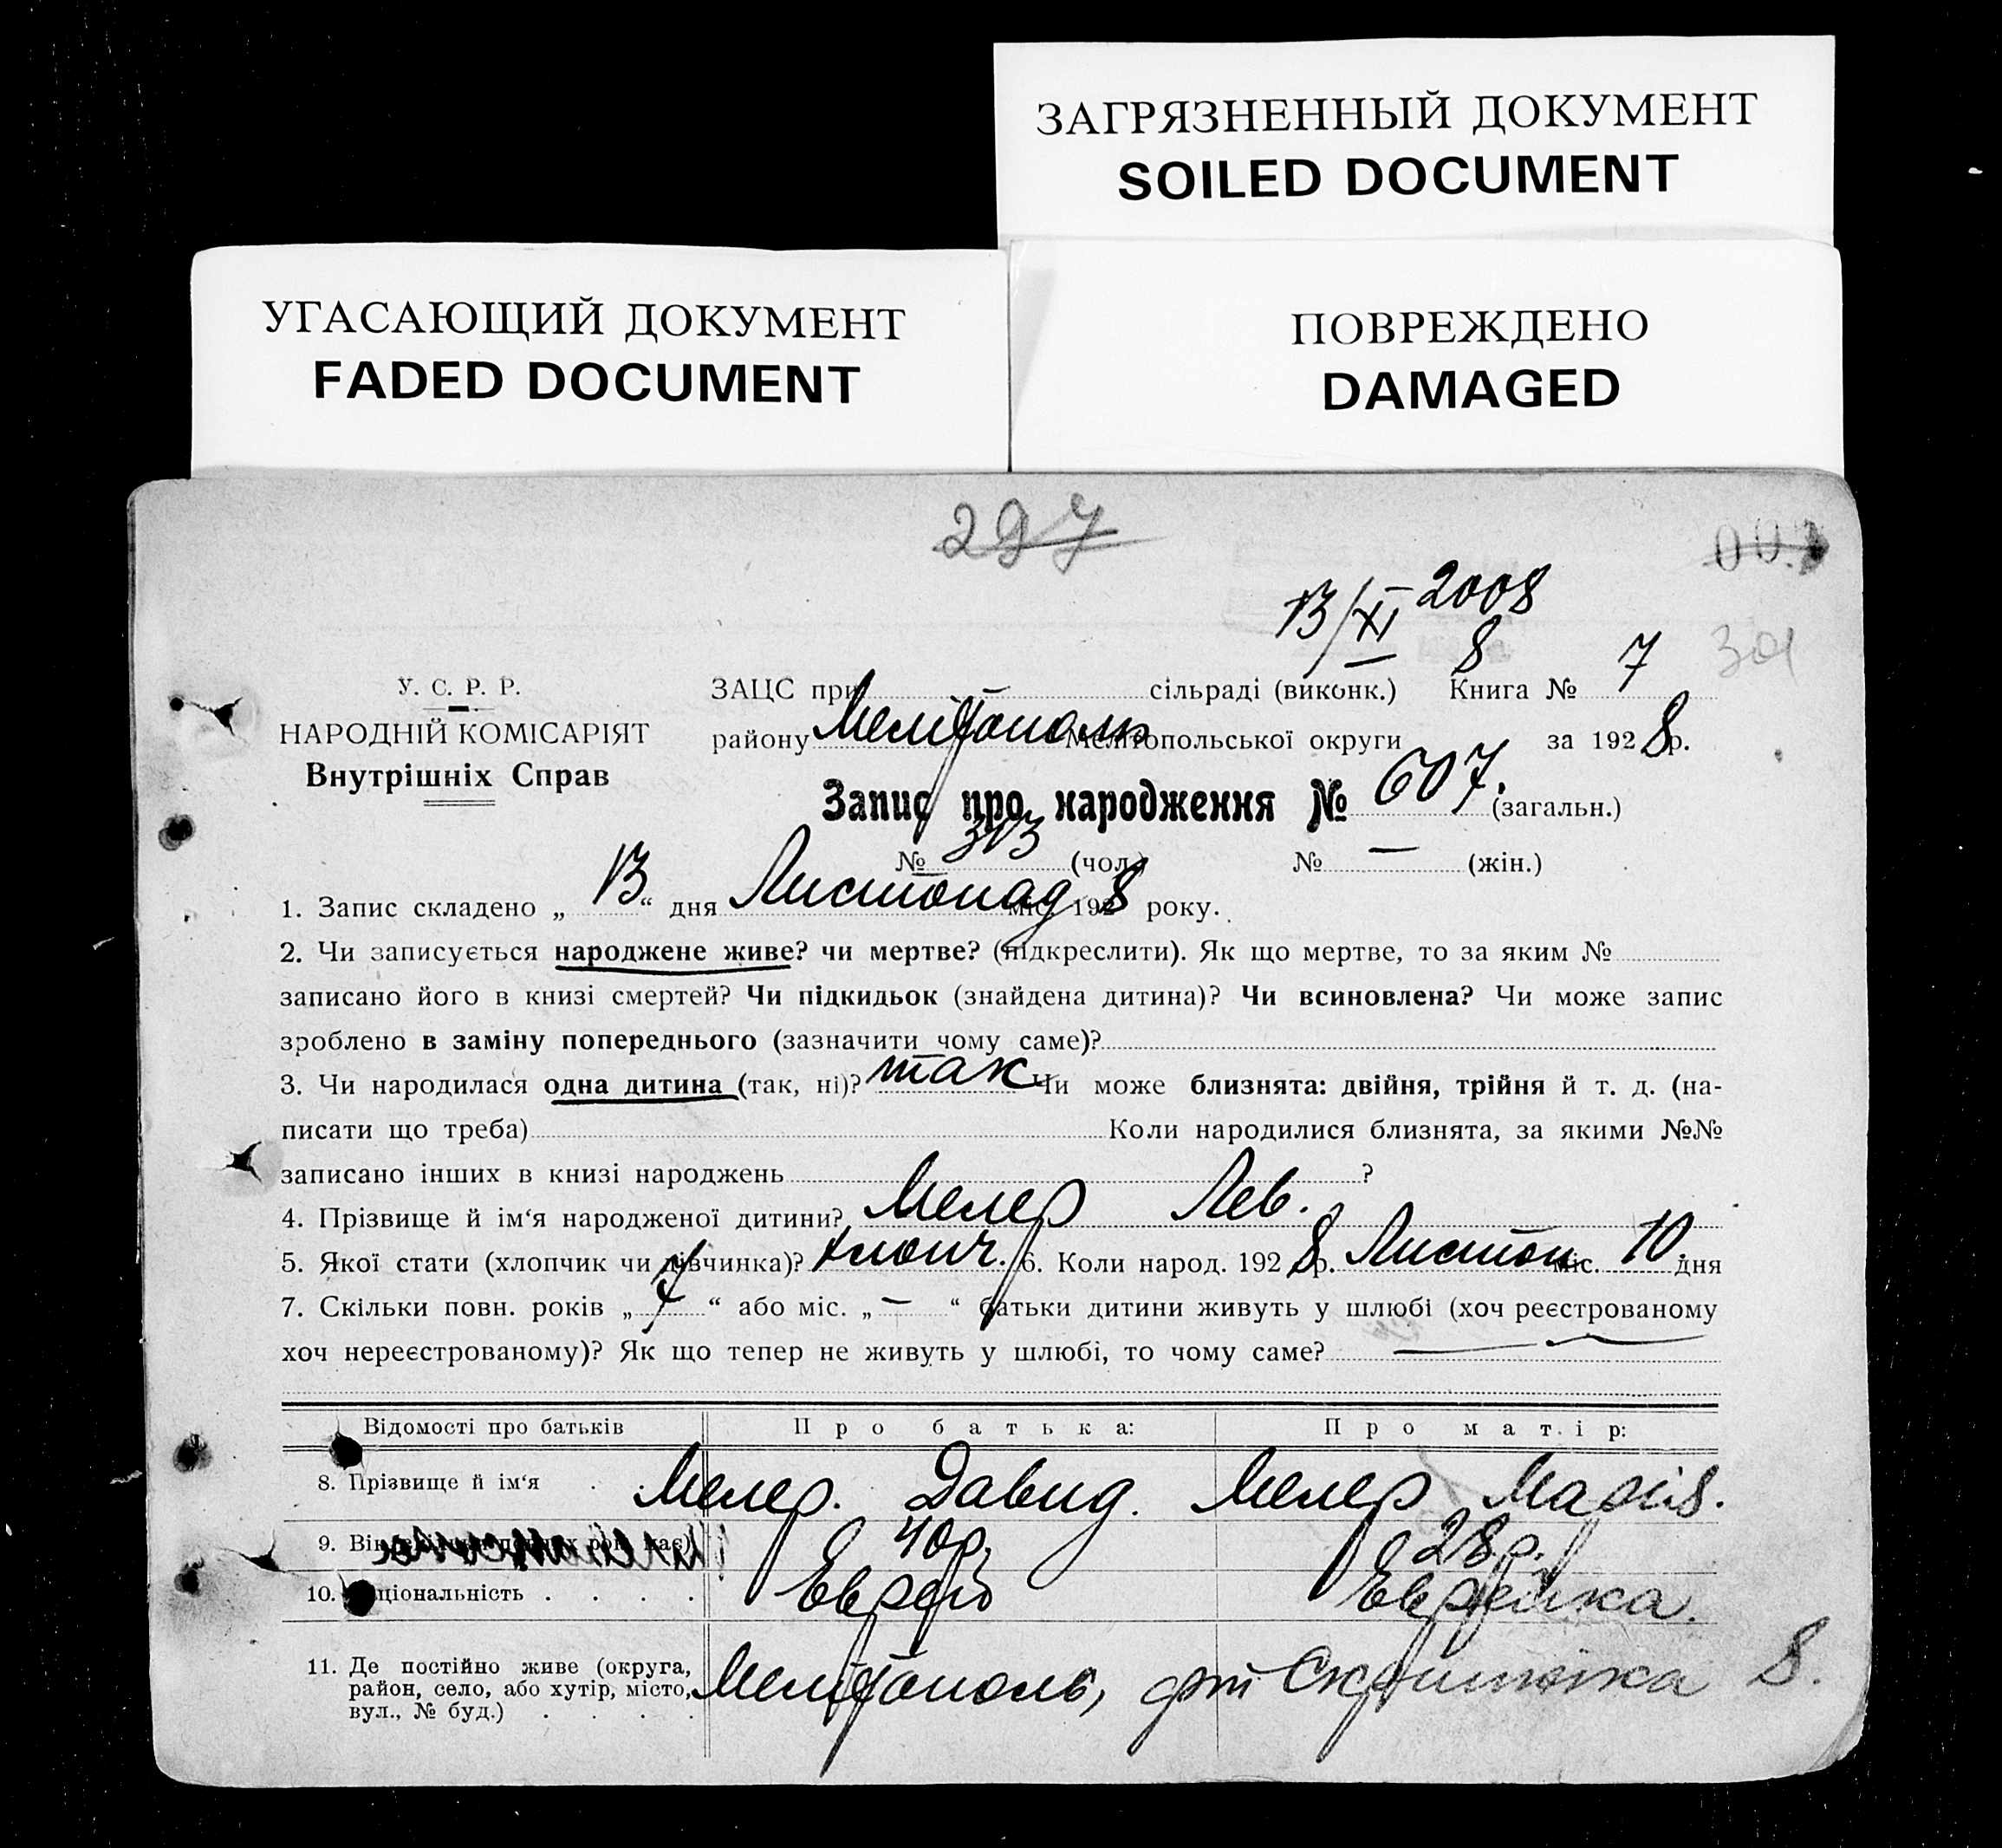 ЗАГРЯЗНЕННЫЙ ДОКУМЕНТ
SOILED DOCUMENT
УГАСАЮЩИЙ ДОКУМЕНТ
FADED DOCUMENT
ПОВРЕЖДЕНО
DAMAGED
297
13/XI 2008
8
301
У. С. Р. Р.
НАРОДНІЙ КОМІСАРІЯТ
Внутрішніх Справ
ЗАЦС при — сільраді (виконк.) Книга № 7
району Мелітополь Мелітопольської округи за 1928 р.
Запис про народження № 607. (загальн.)
№ 313 (чол.) № — (жін.)
1. Запис складено „13“ дня Листопад міс. 1928 року.
2. Чи записується народжене живе? чи мертве? (підкреслити). Як що мертве, то за яким №
записано його в книзі смертей? Чи підкидьок (знайдена дитина)? Чи всиновлена? Чи може запис
зроблено в заміну попереднього (зазначити чому саме)?
3. Чи народилася одна дитина (так, ні)? так Чи може близнята: двійня, трійня й т. д. (на-
писати що треба) Коли народилися близнята, за якими №№
записано інших в книзі народжень ?
4. Прізвище й ім‘я народженої дитини? Мелер Лев.
5. Якої стати (хлопчик чи дівчинка)? хлопч. 6. Коли народ. 1928 р. Листоп міс. 10 дня
7. Скільки повн. років „7“ або міс. „—“ батьки дитини живуть у шлюбі (хоч реєстрованому
хоч нереєстрованому)? Як що тепер не живуть у шлюбі, то чому саме?
Відомості про батьків Про батька: Про матір:
8. Прізвище й ім‘я Мелер. Давид. Мелер Марія.
9. Вік 40 р. 28 р.
10. Національність Еврей Еврейка.
11. Де постійно живе (округа,
район, село, або хутір, місто,
вул., № буд.)
Мелітополь, 8.